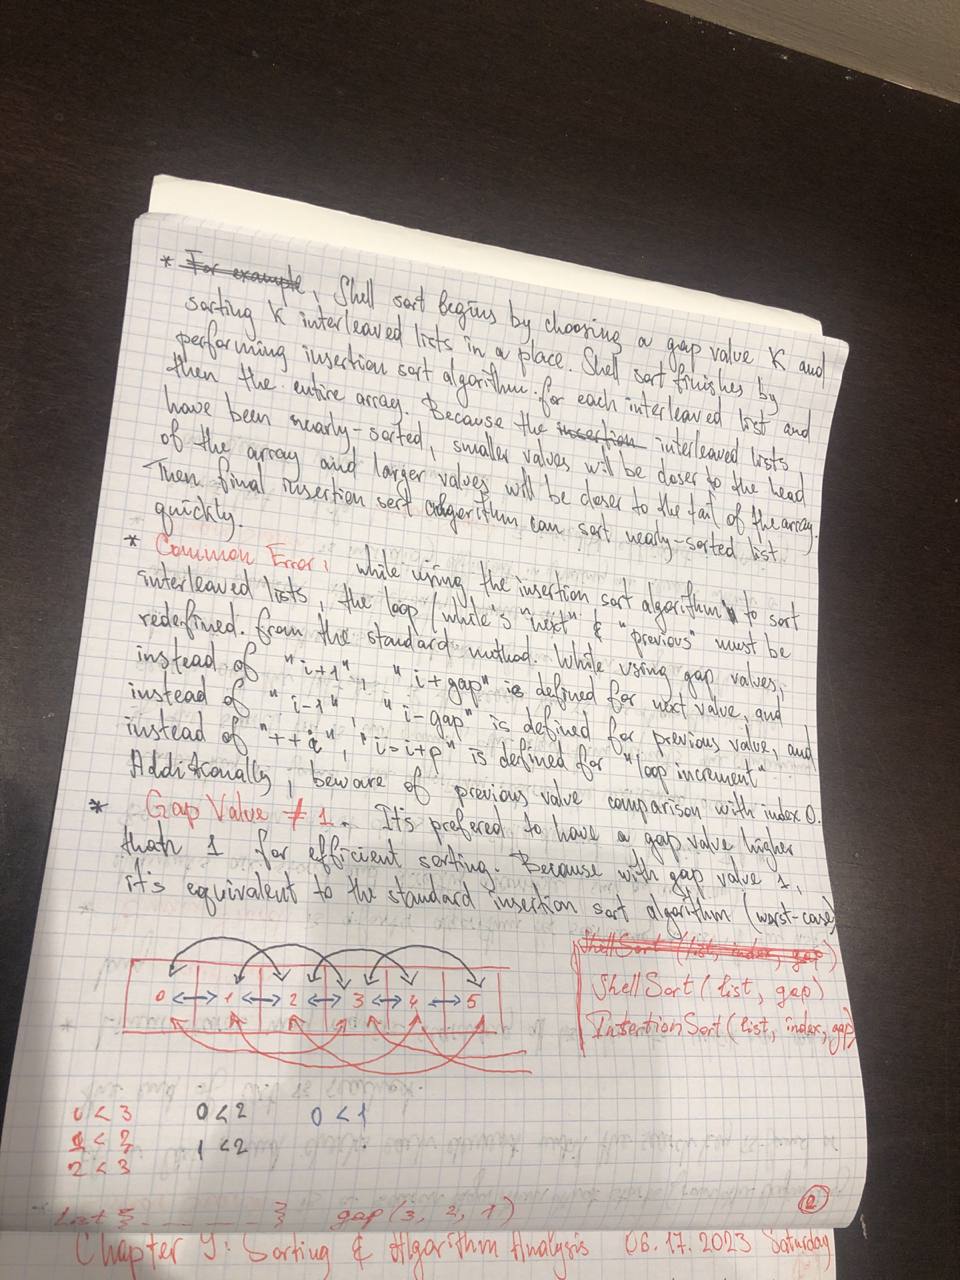 * For example, Shell sort begins by choosing a gap value K and
sorting K interleaved lists in a place. Shell sort finishes by
performing insertion sort algorithm for each interleaved list and
then the entire array. Because the insertion interleaved lists
have been nearly-sorted, smaller values will be closer to the head
of the array and larger values will be closer to the tail of the array.
Then final insertion sort algorithm can sort nearly-sorted list
quickly.
* Common Error: while using the insertion sort algorithm to sort
interleaved lists, the loop (while's "next" & "previous" must be
redefined. from the standard method. While using gap values,
instead of "i+1", "i+gap" is defined for next value, and
instead of "i-1", "i-gap" is defined for previous value, and
instead of "++i", "i=i+p" is defined for "loop increment"
Additionally, beware of previous value comparison with index 0.
* Gap Value ≠ 1. It's prefered to have a gap value higher
than 1 for efficient sorting. Because with gap value 1,
it's equivalent to the standard insertion sort algorithm (worst-case)
ShellSort (list, index, gap)
ShellSort (list, gap)
InsertionSort (list, index, gap)
0 1 2 3 4 5
0 < 3 0 < 2 0 < 1
1 < 3 1 < 2
2 < 3
List { } gap (3, 2, 1)
2
Chapter 9: Sorting & Algorithm Analysis 06.17.2023 Saturday